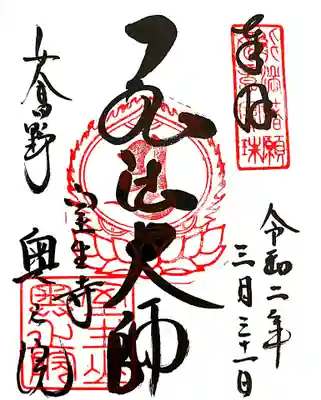 奉拝
弘法大師
女高野
室生寺
奥之院
令和二年
三月三十一日